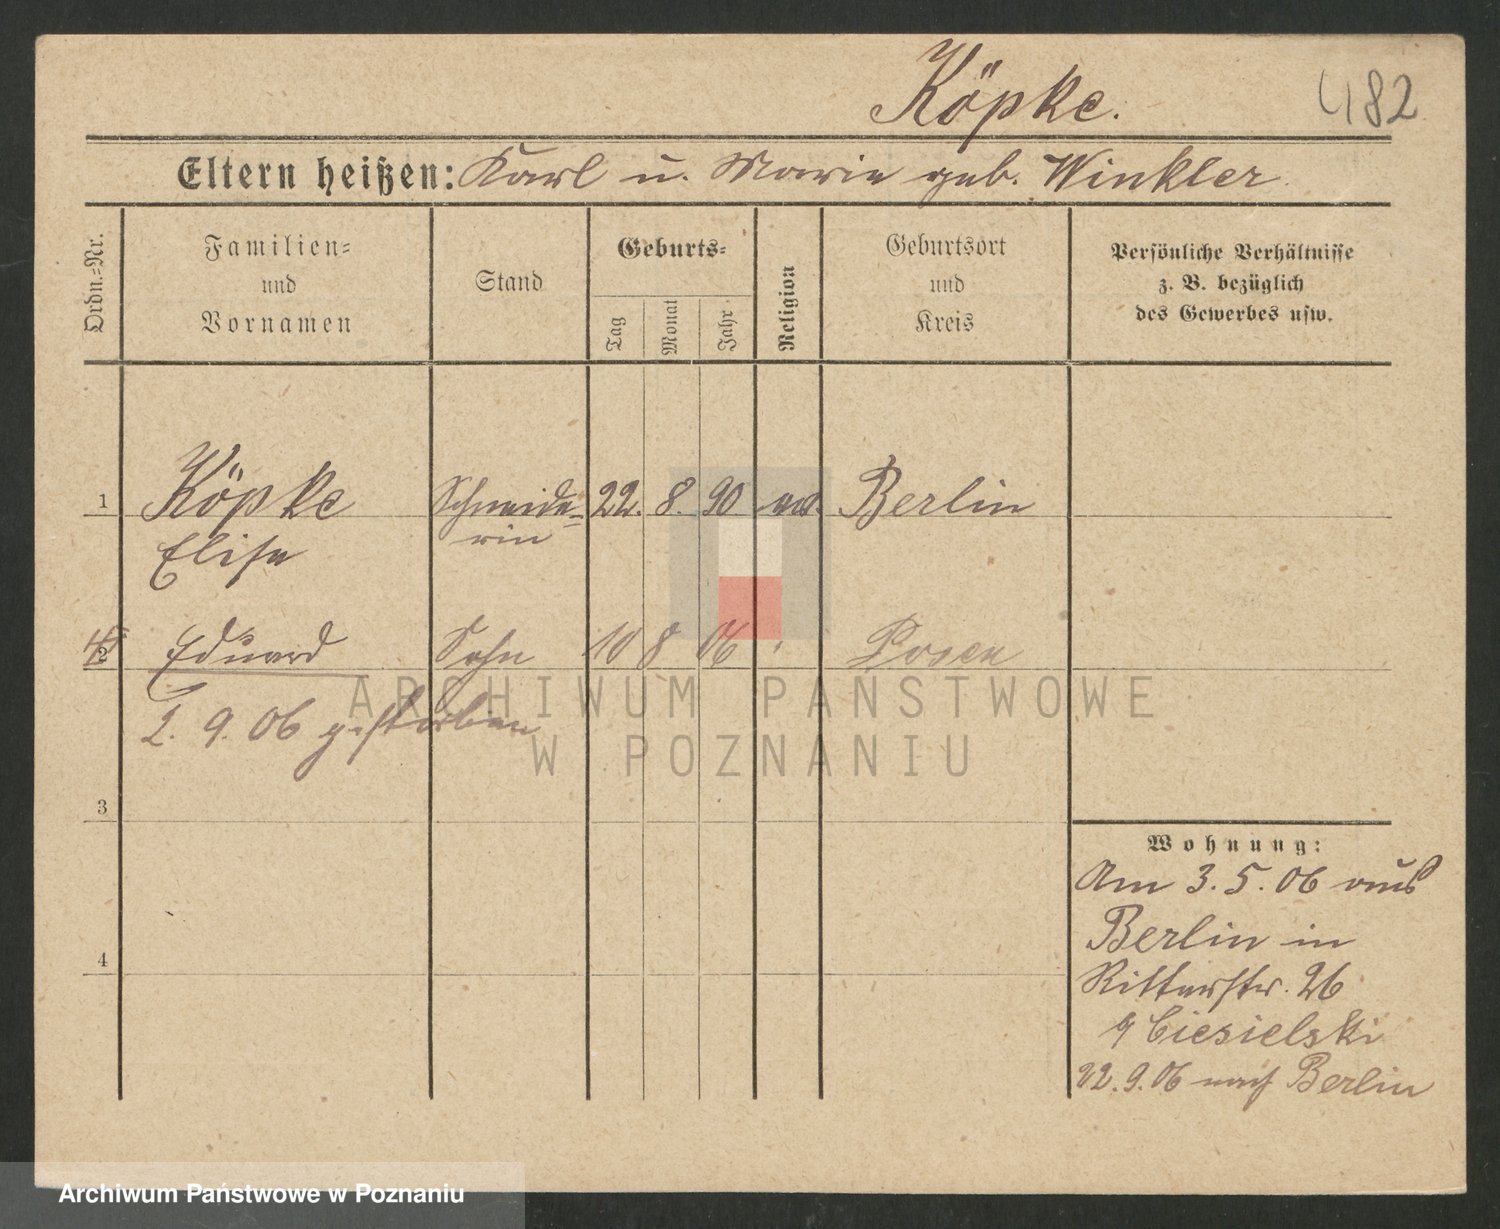 Köpke.
482
Eltern heißen: Karl u. Marie geb. Winkler
Ordn.-Nr.
Familien-
und
Vornamen
Stand
Geburts-
Tag
Monat
Jahr
Religion
Geburtsort
und
Kreis
Persönliche Verhältnisse
z. B. bezüglich
des Gewerbes usw.
1 Köpke Schneide- 22. 8. 90 ev. Berlin
rin
Elise
2 Eduard Sohn 10 8 06 " Posen
2. 9. 06 gestorben
3
4
Wohnung:
Am 3. 5. 06 aus
Berlin in
Ritterstr. 26
Ciesielski
22. 9. 06 nach Berlin
ARCHIWUM PAŃSTWOWE
W POZNANIU
Archiwum Państwowe w Poznaniu